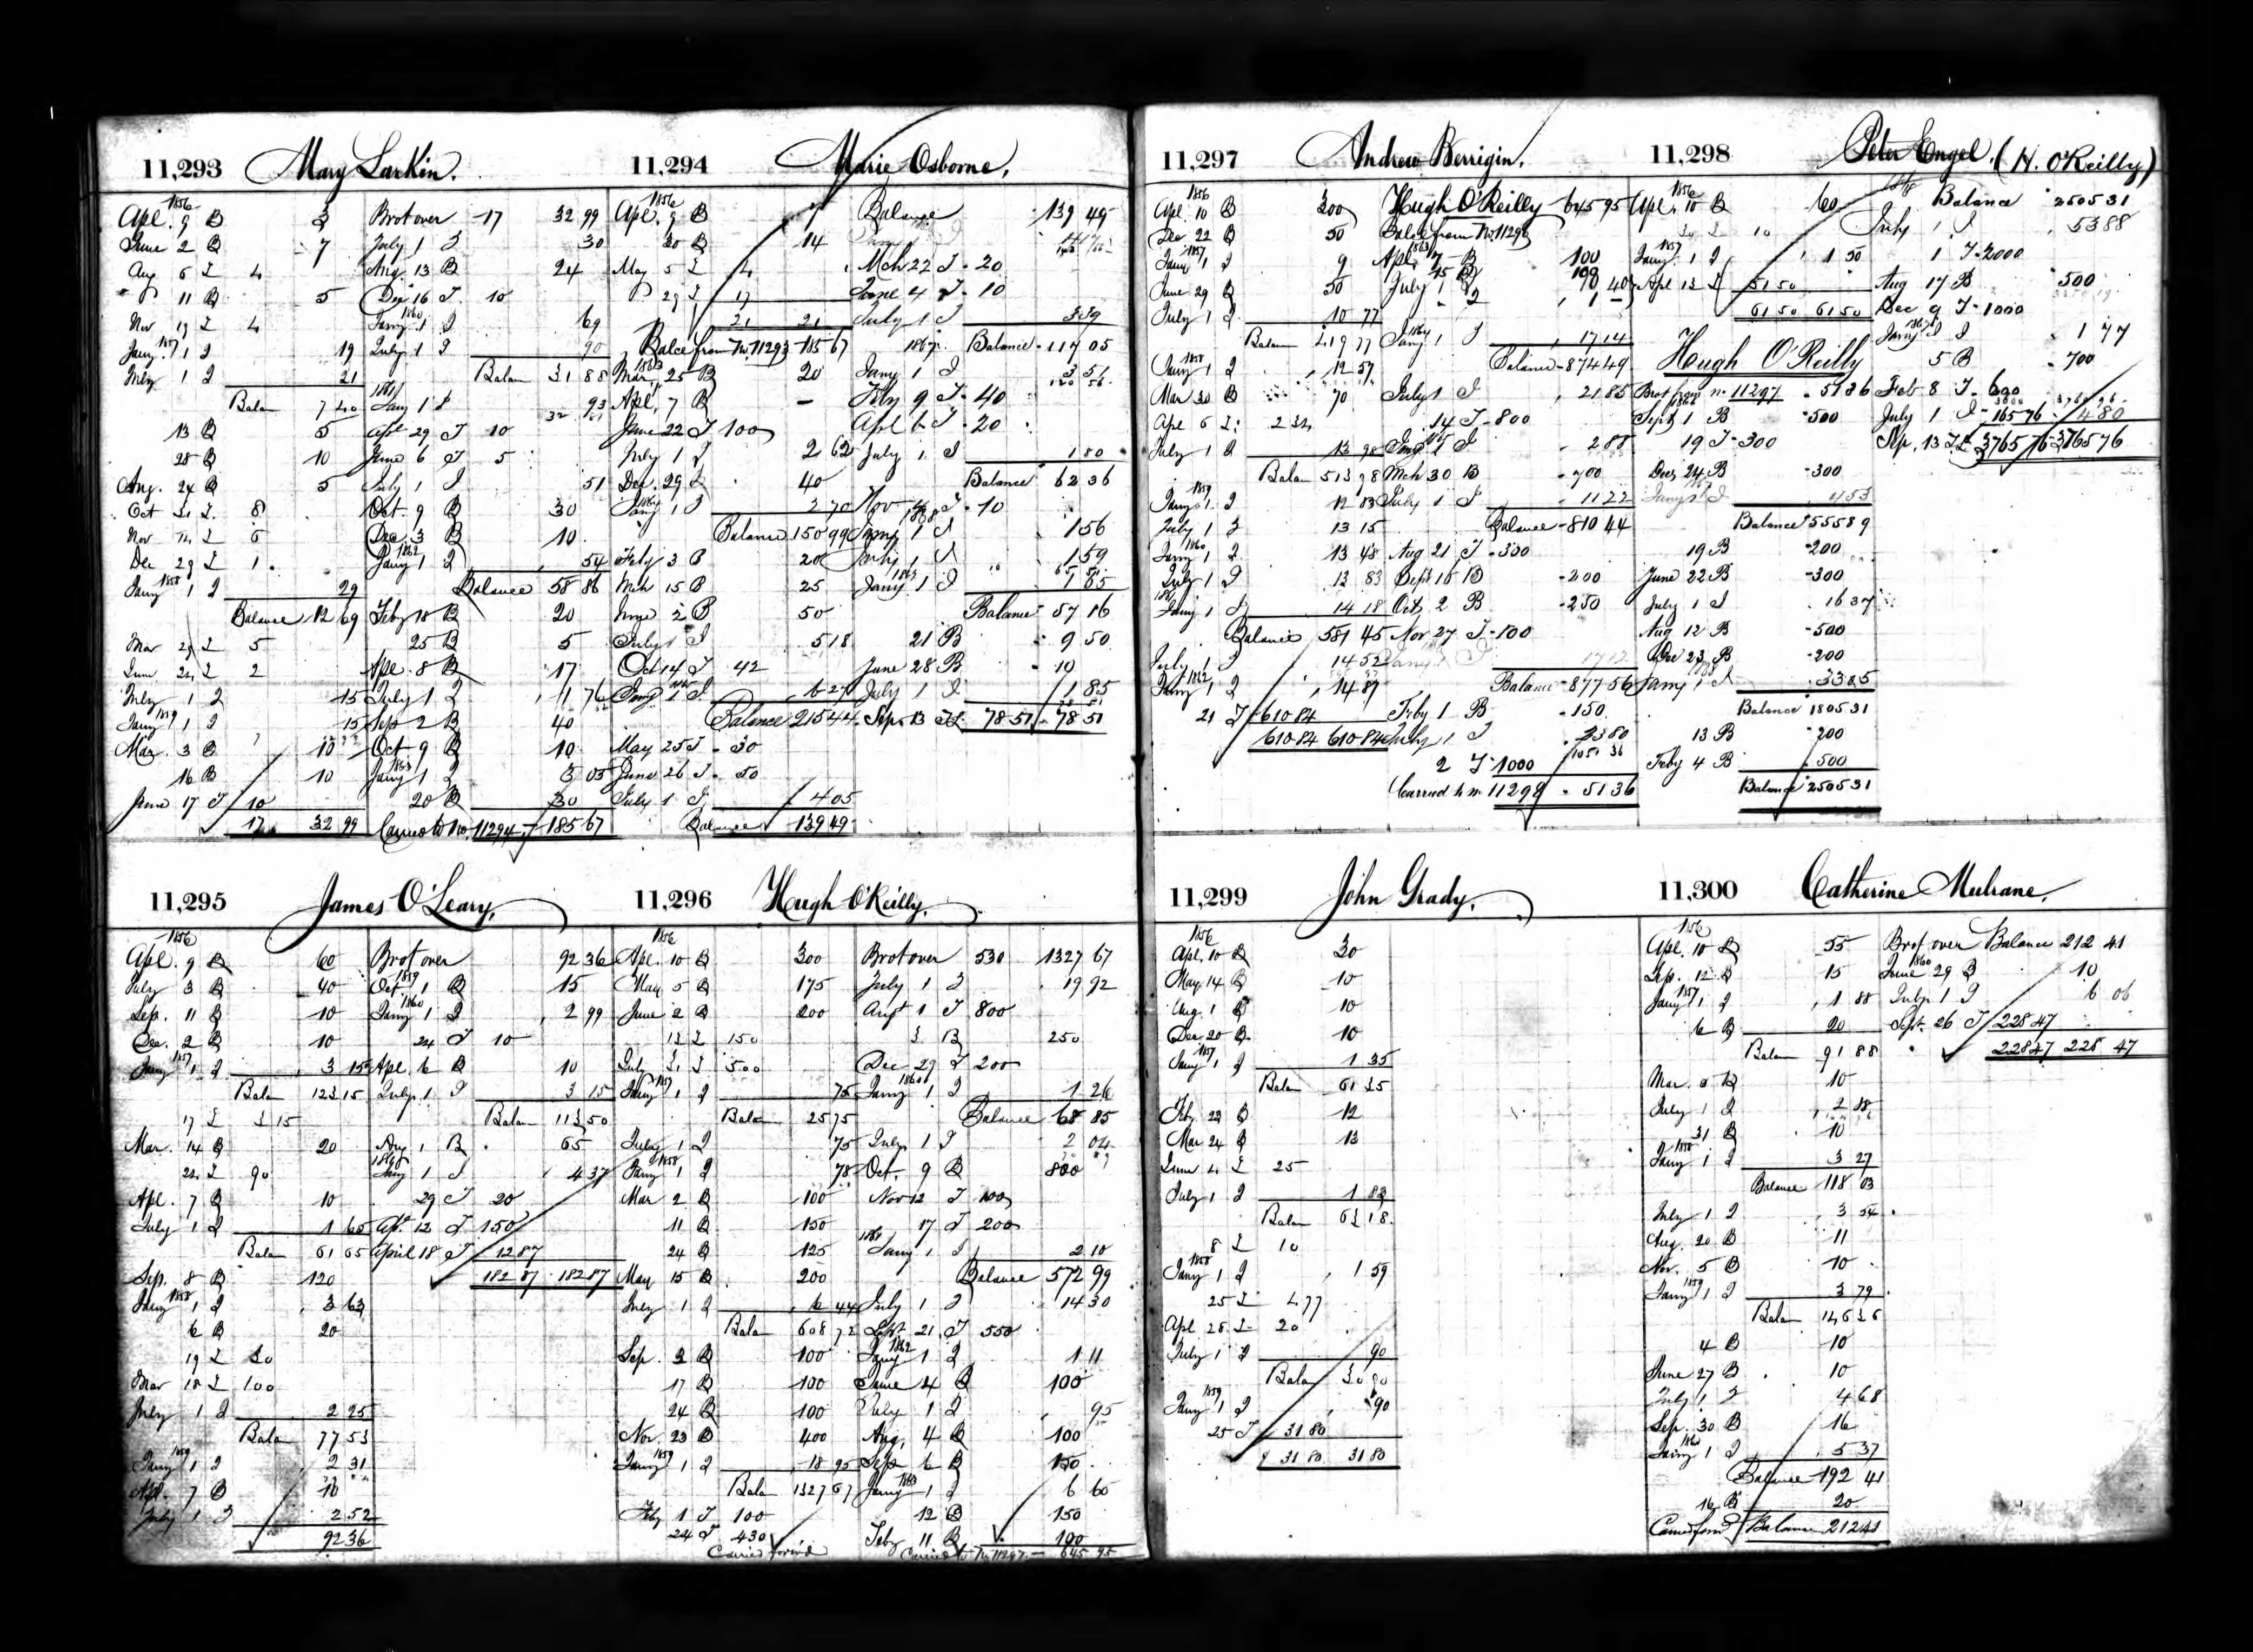 11,293 Mary Larkin.
1856
Apl. 9 B 3
June 2 B 7
Aug 5 I 4
" 11 B 5
Nov 19 I 4
Jany 1857 1 I 19
July 1 I 21
Balan 7 40
13 B 5
28 B 10
Aug. 24 B 5
Oct 31 I. 8
Nov 14 I 5
Dec 29 I 1
Jany 1858 1 I 29
Balance 12 69
Mar 29 I 5
June 24 I 2
July 1 I 15
Jany 1859 1 I 15
Mar. 3 B 10
16 B 10
June 17 I 10
17 32 99
Brot over 17 32 99
July 1 I 30
Aug. 13 B 24
Dec 16 I. 10
1860
Jany 1 I 69
July 1 I 90
Balan 31 88
1861
Jany 1 I 93
Apl 29 I 10
June 6 I 5
July 1 I 51
Oct. 9 B 30
Dec. 3 B 10
1862
Jany 1 I 54
Balance 58 86
Feby 18 B 20
25 B 5
Apl. 8 B 17
July 1 I 1 76
Sep 2 B 40
Oct 9 B 10
1863
Jany 1 I 3 05
20 B 30
Carried to No. 11294 185 67
11,294 Marie Osborne.
1856
Apl. 9 B 7
30 B 14
May 5 I 4
" 29 I 17
21 21
Balce from No. 11293 185 67
1863
Mar, 25 B 20
Apl, 7 B
June 22 I 100
July 1 I 2 62
Dec. 29 B 40
1864
Jany 1 I 2 70
Balance 150 99
Feby 3 B 20
Mch 15 B 25
June 2 B 50
July 1 I 5 18
Oct 14 I 42
Jany 1865 1 I 6 27
Balance 215 44
May 25 I 30
June 26 I 50
July 1 I 4 05
Balance 139 49
Balance 139 49
Mch 22 I 20
June 4 I 10
July 1 I 3 39
1867 Balance 117 05
Jany 1 I 3 51
Feby 9 I 40
Apl 6 I 20
July 1 I 1 80
Balance 62 36
Nov 4 I 10
1868
Jany 1 I 1 56
July 1 I 1 59
1869
Jany 1 I 1 65
Balance 57 16
21 B 9 50
June 28 B 10
July 1 I 1 85
Sep. 13 I 78 51 78 51
11,295 James O'Leary,
1856
Apl. 9 B 60
July 3 B 40
Sep. 11 B 10
Dec. 2 B 10
Jany 1857 1 I 3 15
Balan 123 15
17 I 3 15
Mar. 14 B 20
24 I 90
Apl. 7 B 10
July 1 I 1 65
Balan 61 65
Sep. 8 B 120
Jany 1858 1 I 3 63
6 B 20
19 I 30
Mar 18 I 100
July 1 I 2 25
Balan 77 53
Jany 1859 1 I 2 31
Apl. 7 B 10
July 1 I 2 52
92 36
Brot over 92 36
1859
Oct 1 B 15
1860
Jany 1 I 2 99
24 I 10
Apl. 6 B 10
July 1 I 3 15
Balan 113 50
Aug 1 B 65
Jany 1 I 4 37
29 I 20
Apl. 12 I 150
April 18 I 12 87
182 87 182 87
11,296 Hugh O'Reilly.
1856
Apl. 10 B 300
May 5 B 175
June 2 B 200
13 I 150
July 3 I 500
Jany 1857 1 I 75
Balan 25 75
July 1 I 75
Jany 1858 1 I 78
Mar 2 B 100
11 B 150
24 B 125
May 15 B 200
July 1 I 6 44
Balan 608 72
Sep. 3 B 100
17 B 100
24 B 100
Nov. 23 B 400
Jany 1859 1 I 18 95
Balan 1327 67
Feby 1 I 100
24 I 430
Carried forwd
Brot over 530 1327 67
July 1 I 19 92
Augt 1 I 800
3 B 250
Dec 29 I 200
Jany 1860 1 I 1 26
Balance 68 85
July 1 I 2 04
Oct. 9 B 800
Nov 12 I 100
17 I 200
1861
Jany 1 I 2 10
Balance 572 99
July 1 I 14 30
Sept. 21 I 550
1862
Jany 1 I 1 11
June 4 B 100
July 1 I 95
Aug. 4 B 100
Sep 6 B 150
Jany 1863 1 I 6 60
12 B 150
Feby 11 B 100
Carried to No 11297 645 95
11,297 Andrew Berrigin.
1856
Apl. 10 B 300
Dec 22 B 50
1857
Jany 1 I 9
June 29 B 50
July 1 I 10 77
Balan 419 77
1858
Jany 1 I 12 57
Mar 30 B 70
Apl 6 I
July 1 I 13 98
Balan 513 98
1859
Jany 1 I 12 83
July 1 I 13 15
1860
Jany 1 I 13 48
July 1 I 13 83
1861
Jany 1 I 14 18
Balance 581 45
July 1 I 14 52
1862
Jany 1 I 14 87
21 I 610 84
610 84 610 84
Hugh O'Reilly 645 95
Balce from No. 11296
1863
Apl, 7 B 100
July 1 I
1864
Jany 1 I 17 14
Balance 874 49
July 1 I 21 85
14 I 800
Jany 1865 1 I 2 88
Mch 30 B 700
July 1 I 11 22
Balance 810 44
Aug 21 I 300
Sept 15 B 200
Oct, 2 B 250
Nov 27 I 100
Jany 1 I 17 12
Balance 877 56
Feby 1 B 150
July 1 I 23 80
2 I 1000
Carried to No. 11298 51 36
11,298 Peter Engel. (H. O'Reilly)
1856
Apl. 10 B 60
30 I 10
1857
Jany 1 I 1 50
Apl 13 I 51 50
61 50 61 50
Hugh O'Reilly
Brot from No. 11297 51 36
1866
Sept 1 B 500
19 I 300
Dec, 24 B 300
Jany 1 I 4 53
Balance 555 89
19 B 200
June 22 B 300
July 1 I 16 37
Aug 12 B 500
Dec 23 B 200
1868
Jany 1 I 33 05
Balance 1805 31
13 B 200
Feby 4 B 500
Balance 2505 31
1868 Balance 2505 31
July 1 I 53 88
1 I 2000
Aug 17 B 500
Dec 9 I 1000
1869
Jany 1 I 1 77
5 B 700
Feb 8 I 600
July 1 I 165 76 4 80
Sep. 13 I 3765 76 3765 76
11,299 John Grady.
1856
Apl. 10 B 30
May 14 B 10
Aug. 1 B 10
Dec 20 B 10
1857
Jany 1 I 1 35
Balan 61 35
Feby. 23 B 12
Mar 24 B 13
June 4 I 25
July 1 I 1 83
Balan 63 18
8 I 10
1858
Jany 1 I 1 59
25 I 4 77
Apl. 28 I 20
July 1 I 90
Balan 30 90
1859
Jany 1 I 90
25 I 31 80
31 80 31 80
11,300 Catherine Mulrane.
1856
Apl. 10 B 55
Sep. 12 B 15
Jany 1857 1 I 1 88
6 B 20
Balan 91 88
Mar. 5 B 10
July 1 I 2 88
31 B 10
1858
Jany 1 I 3 27
Balance 118 03
July 1 I 3 54
Aug. 20 B 11
Nov. 5 B 10
1859
Jany 1 I 3 79
Balan 146 36
4 B 10
June 27 B 10
July 1 I 4 68
Sep. 30 B 16
1860
Jany 1 I 5 37
Balance 192 41
16 B 20
Carried forwd Balance 212 41
Brot over Balance 212 41
1860
June 29 B 10
July 1 I 6 06
Sept. 26 I 228 47
228 47 228 47